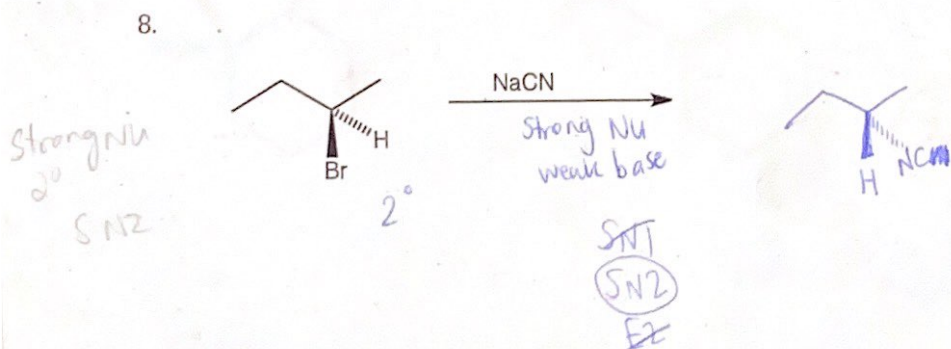 8.
NaCN
Strong Nu
2°
SN2
H
Br
2°
Strong Nu
weak base
SN1
SN2
E2
H
NC